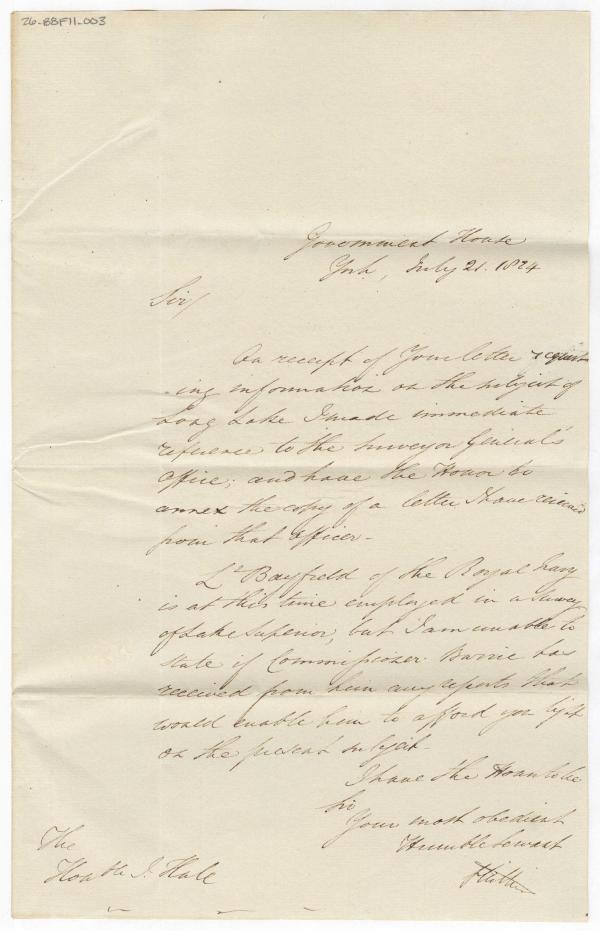 26-BBF11-003
Government House
York, July 21. 1824
Sir/
On receipt of Your letter request
-ing information on the subject of
Long Lake I made immediate
reference to the Surveyor General's
Office; and have the Honor to
annex the copy of a letter I have received
from that officer-
Lt Bayfield of the Royal Navy
is at this time employed in a Survey
of Lake Superior, but I am unable to
state if Commissioner Barrie has
received from him any reports that
would enable him to afford you light
on the present subject-
I have the Honor to be
Sir
Your most obedient
Humble Servant
The
Honble J. Hale